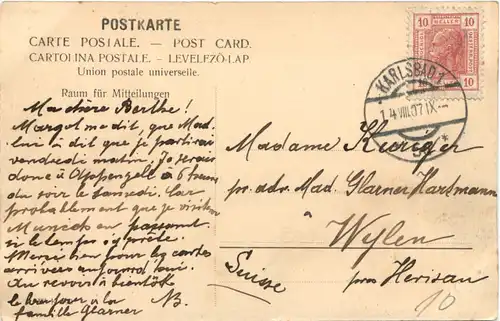 POSTKARTE
CARTE POSTALE. — POST CARD.
CARTOLINA POSTALE. — LEVELEZÖ-LAP
Union postale universelle.
Raum für Mitteilungen
Ma chère Berthe!
Margot me dit, que Mad.
lui à dit que je partirai
vendredi matin. Je serais
donc à Appenzell à 6
du soir le samedi. Car
probablement que je visiten
en passant
si le temps
Merci bien pour les cartes
arrivées aujourd'hui.
Au revoir à bientôt
le bonjour à la
famille Glarner
10 HELLER 10
KARLSBAD 1
14 VIII 07 IX
Madame
pr. adr. Mad. Glarner Hartmann
Wylen
Suisse
près Herisau
10